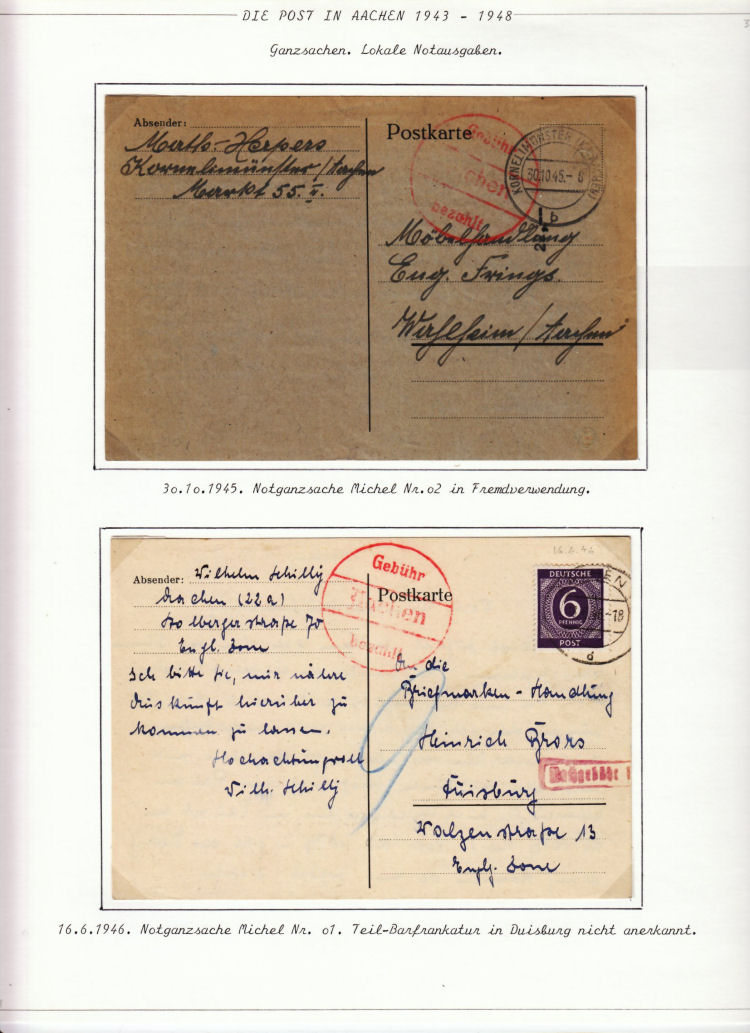 DIE POST IN AACHEN 1943 - 1948
Ganzsachen. Lokale Notausgaben.
Absender:
Math. Herpers
Kornelimünster / Aachen
Markt 55. II.
Postkarte
Gebühr
Aachen
bezahlt
KORNELIMÜNSTER (AACHEN)
30.10.45.- 8
b
Möbelhandlung
Eug. Frings.
Walheim / Aachen
30.10.1945. Notganzsache Michel Nr.02 in Fremdverwendung.
16.6.46
Absender: Wilhelm Schilly
Aachen (22a)
Stolbergerstraße 70
Engl. Zone
Ich bitte Sie, mir nähere
Auskunft hierüber zu
kommen zu lassen.
Hochachtungsvoll
Wilh. Schilly
Gebühr
Aachen
bezahlt
Postkarte
DEUTSCHE
6
PFENNIG
POST
-18
d
An die
Briefmarken-Handlung
Heinrich Brors
Nachgebühr
Duisburg
Walzenstraße 13
Engl. Zone
9
16.6.1946. Notganzsache Michel Nr. 01. Teil-Barfrankatur in Duisburg nicht anerkannt.